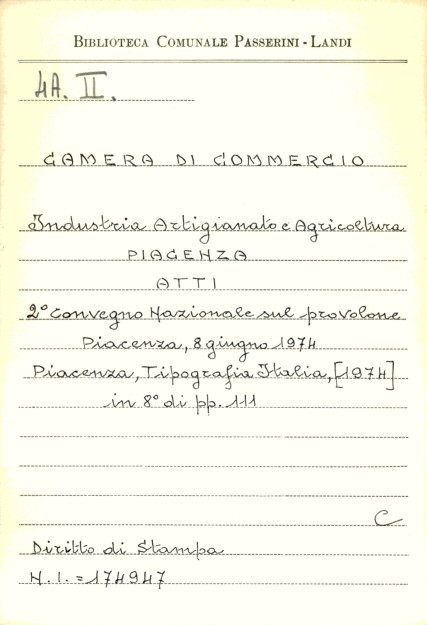 BIBLIOTECA COMUNALE PASSERINI - LANDI
4A. II.
CAMERA DI COMMERCIO
Industria Artigianato e Agricoltura
PIACENZA
ATTI
2° Convegno Nazionale sul provolone
Piacenza, 8 giugno 1974
Piacenza, Tipografia Italia, [1974]
in 8° di pp. 111
C
Diritto di Stampa
N.I. = 174947